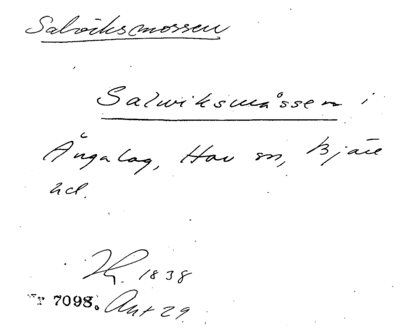 Salviksmossen
Salwiksmåssen i
Ängalag, Hov sn, Bjäre
hd.
1838
Nr 7098. Akt 29